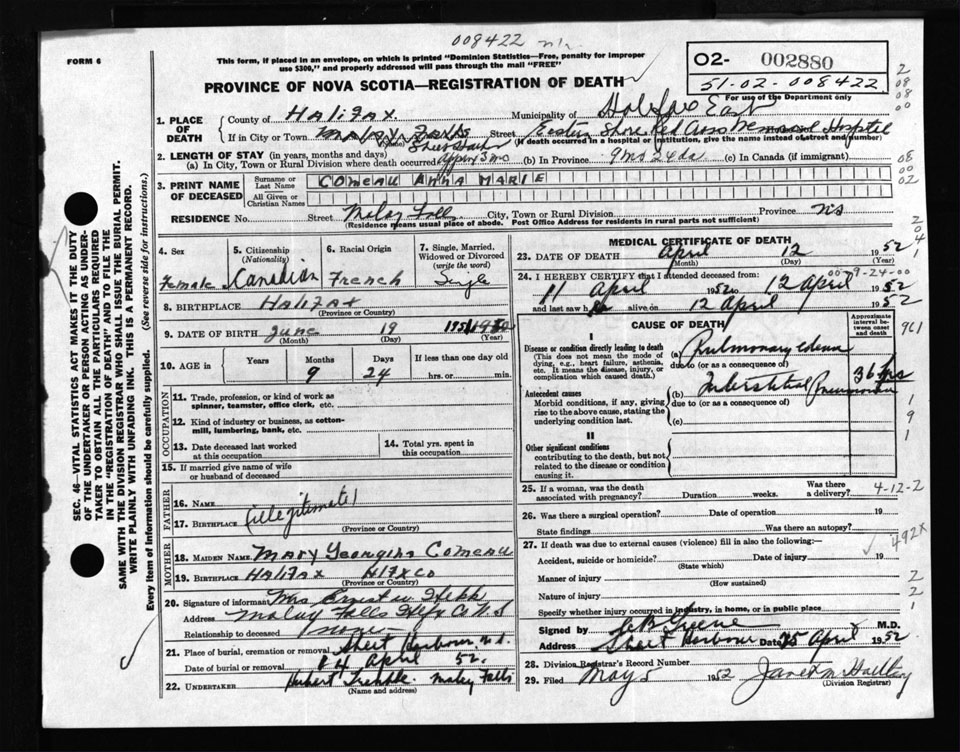 008422
FORM 6
This form, if placed in an envelope, on which is printed "Dominion Statistics—Free, penalty for improper
use $300," and properly addressed will pass through the mail "FREE"
O2- 002880
51-02-008422
For use of the Department only
PROVINCE OF NOVA SCOTIA—REGISTRATION OF DEATH
1. PLACE OF DEATH
County of HALIFAX. Municipality of Halifax East
If in City or Town MALAY Falls Street Eastern Shore Red Cross Memorial Hospital
Sheet Harbour
(If death occurred in a hospital or institution, give the name instead of street and number)
2. LENGTH OF STAY (in years, months and days)
(a) In City, Town or Rural Division where death occurred Approx 3 mo (b) In Province 9 mos 24 da (c) In Canada (if immigrant)
3. PRINT NAME OF DECEASED
Surname or Last Name COMEAU ANNA MARIE
All Given or Christian Names
RESIDENCE No. Street Malay Falls City, Town or Rural Division Province NS
(Residence means usual place of abode. Post Office Address for residents in rural parts not sufficient)
4. Sex Female
5. Citizenship (Nationality) Canadian
6. Racial Origin French
7. Single, Married, Widowed or Divorced (write the word) Single
8. BIRTHPLACE HALIFAX
(Province or Country)
9. DATE OF BIRTH June 19 1951
(Month) (Day) (Year)
10. AGE in Years Months 9 Days 24 If less than one day old hrs. or min.
OCCUPATION
11. Trade, profession, or kind of work as spinner, teamster, office clerk, etc.
12. Kind of industry or business, as cotton-mill, lumbering, bank, etc.
13. Date deceased last worked at this occupation
14. Total yrs. spent in this occupation
15. If married give name of wife or husband of deceased
FATHER
16. NAME (illegitimate)
17. BIRTHPLACE
(Province or Country)
MOTHER
18. MAIDEN NAME MARY Georgina COMEAU
19. BIRTHPLACE HALIFAX HLFX CO
(Province or Country)
20. Signature of informant Mrs Ernest W
Address Malay Falls Hfx Co N.S
Relationship to deceased none
21. Place of burial, cremation or removal Sheet Harbour N.S.
Date of burial or removal 14 April 52.
22. UNDERTAKER Hubert Malay Falls
(Name and address)
MEDICAL CERTIFICATE OF DEATH
23. DATE OF DEATH April 12 1952
(Month) (Day) (Year)
24. I HEREBY CERTIFY that I attended deceased from:
11 April 1952 to 12 April 1952
and last saw h alive on 12 April 1952
CAUSE OF DEATH
Approximate interval between onset and death
I
Disease or condition directly leading to death (a) Pulmonary edema
(This does not mean the mode of dying, e.g., heart failure, asthenia, etc. It means the disease, injury, or complication which caused death.)
due to (or as a consequence of)
Antecedent causes (b) Interstitial Pneumonia 36 hrs
Morbid conditions, if any, giving rise to the above cause, stating the underlying condition last.
due to (or as a consequence of)
(c)
II
Other significant conditions
contributing to the death, but not related to the disease or condition causing it.
25. If a woman, was the death associated with pregnancy? Duration weeks. Was there a delivery?
4-12-2
26. Was there a surgical operation? Date of operation 19
State findings Was there an autopsy?
492X
27. If death was due to external causes (violence) fill in also the following:—
Accident, suicide or homicide? Date of injury 19
(State which)
Manner of injury
(How sustained)
Nature of injury
Specify whether injury occurred in industry, in home, or in public place
Signed by Greene M.D.
Address Sheet Harbour Date 25 April 1952
28. Division Registrar's Record Number
29. Filed May 5 1952 Janet M
(Division Registrar)
SEC. 46—VITAL STATISTICS ACT MAKES IT THE DUTY
OF THE UNDERTAKER OR PERSON ACTING AS UNDER-
TAKER TO OBTAIN ALL THE PARTICULARS REQUIRED
IN THE "REGISTRATION OF DEATH" AND TO FILE THE
SAME WITH THE DIVISION REGISTRAR WHO SHALL ISSUE THE BURIAL PERMIT.
WRITE PLAINLY WITH UNFADING INK. THIS IS A PERMANENT RECORD.
Every item of information should be carefully supplied. (See reverse side for instructions.)